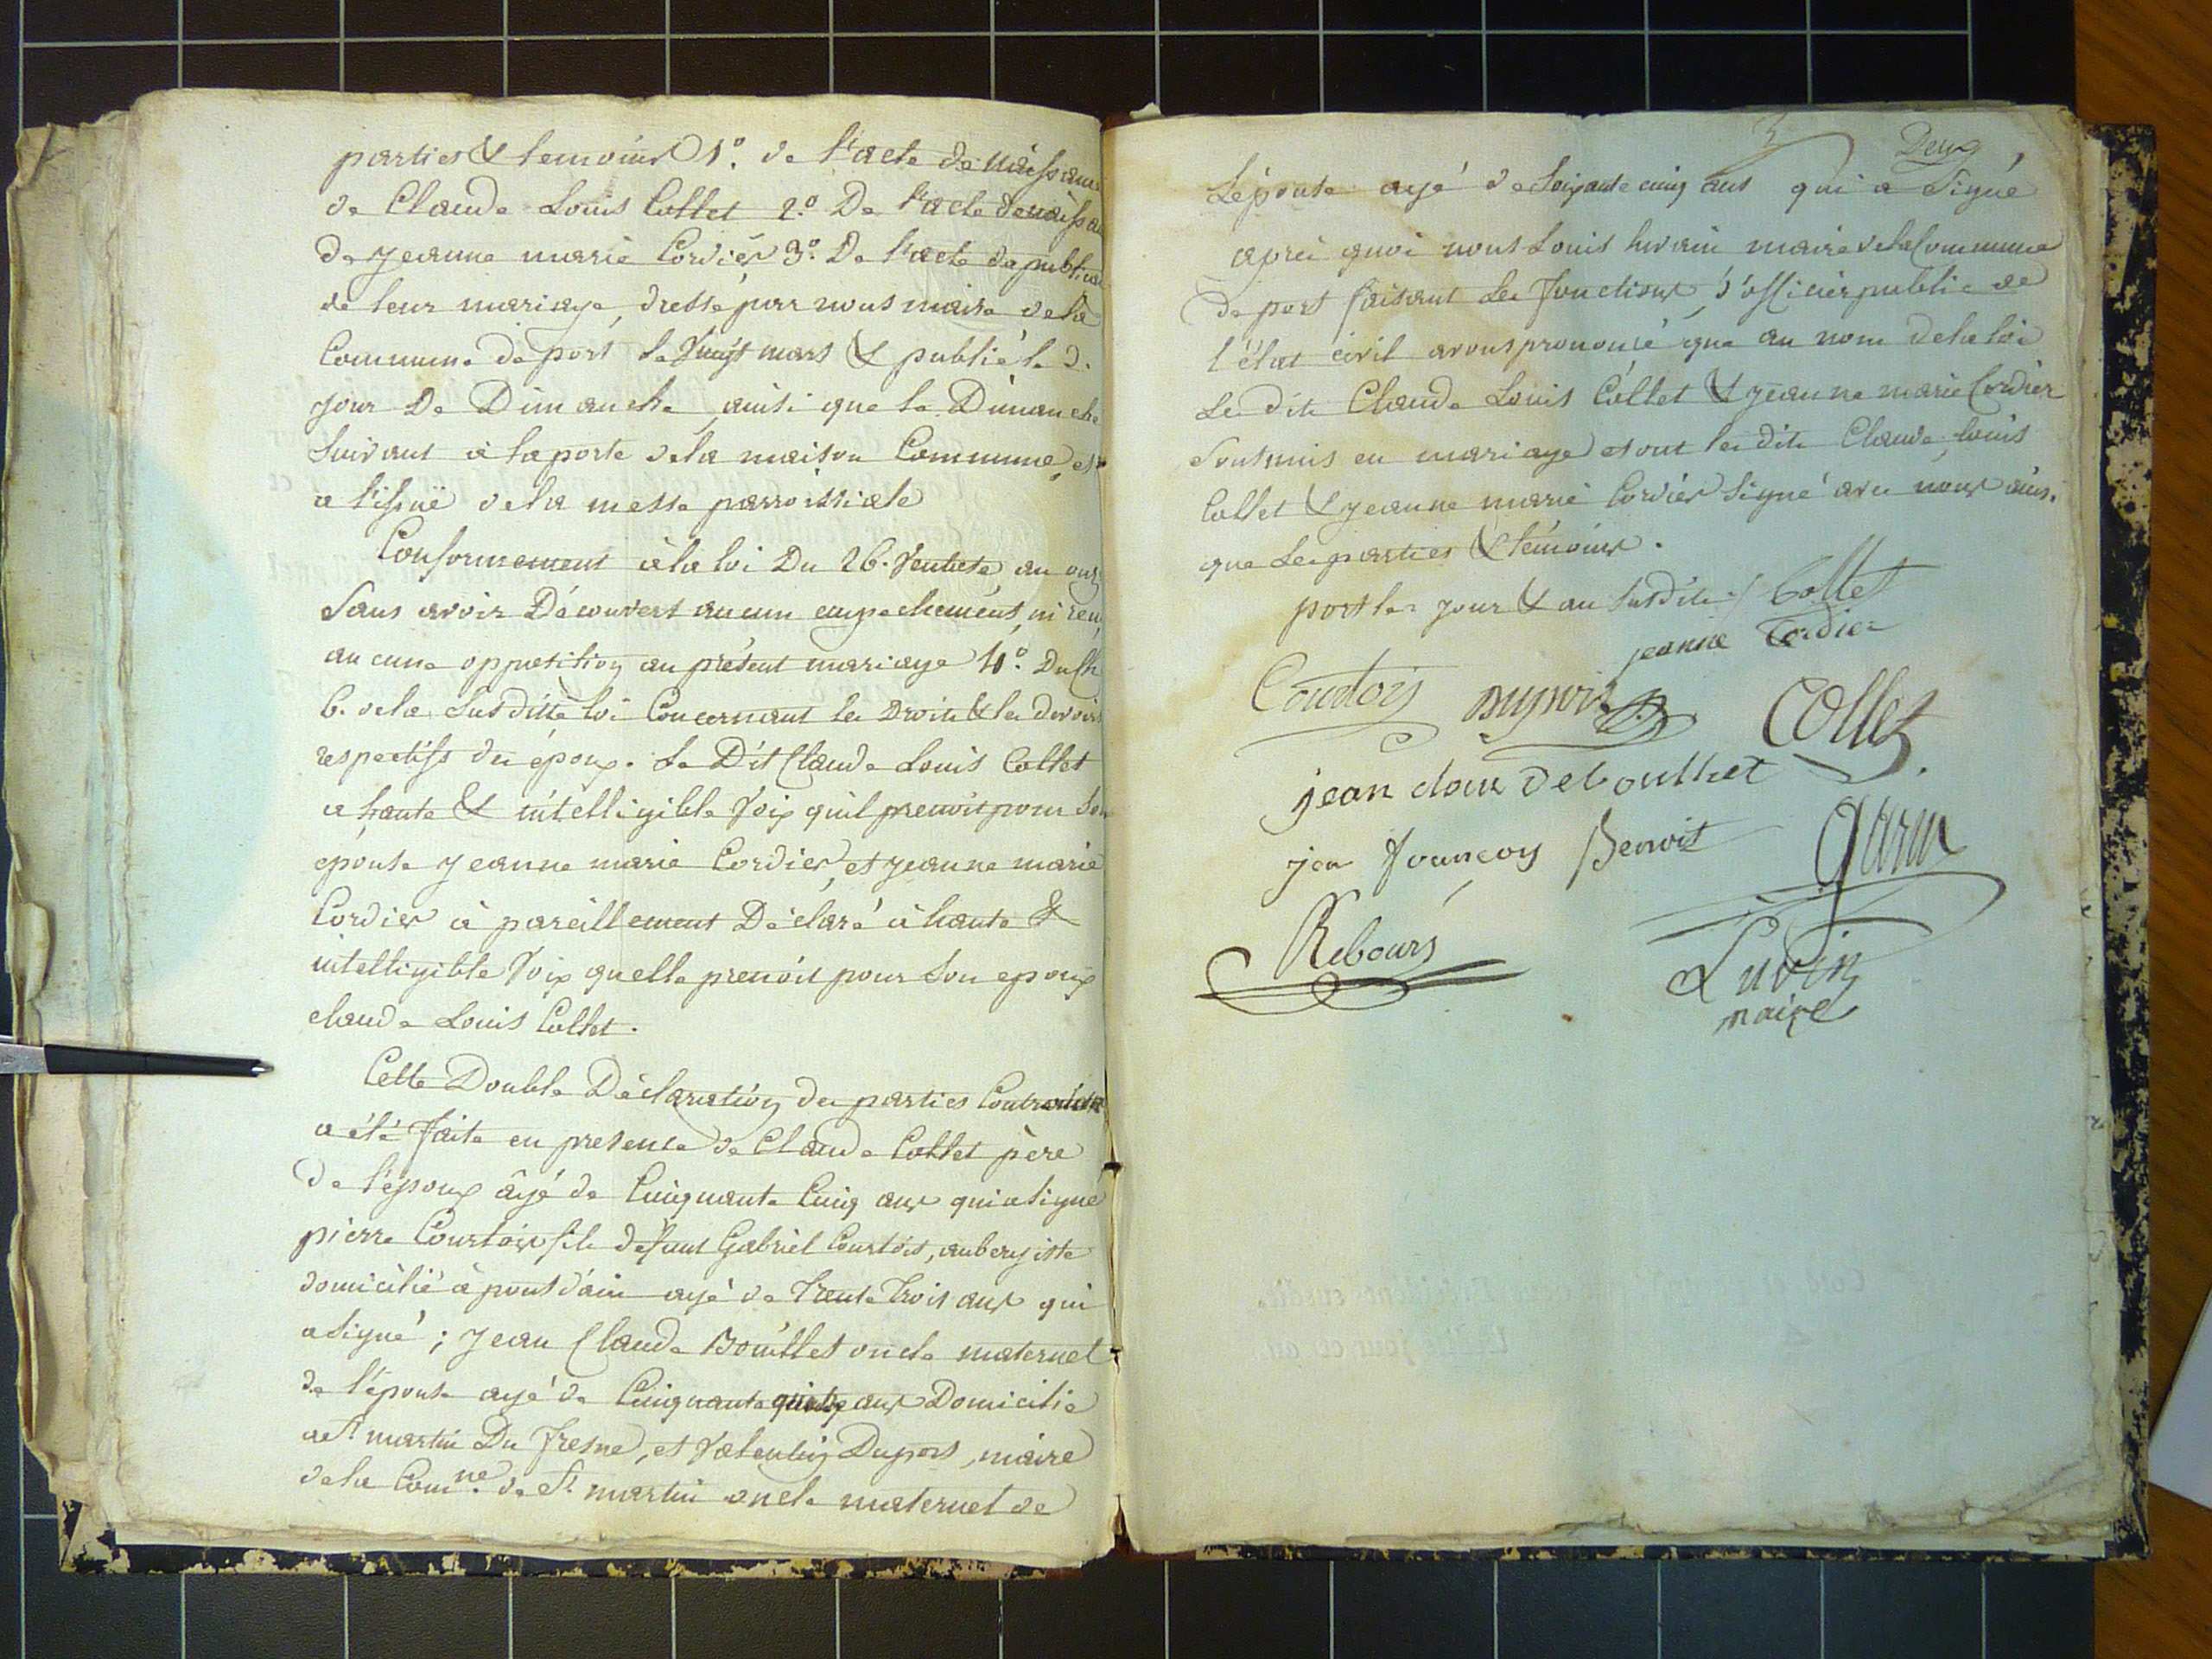 parties & temoins 1.° de l'acte de naissan
de Claude Louis Collet 2.° De l'acte de naissa
de jeanne marie Cordier 3.° De l'acte de publica
de leur mariage, dressé par nous maire de la
Commune de port le Vingt mars & publié le d.
jour De Dimanche, ainsi que le Dimanche
suivant à la porte de la maison Commune, et
a l'issuë de la messe parroissiale
Conformement à la loi Du 26. Ventose an onz
sans avoir Découvert aucun empechement, ni reçu
aucune oppotition au présent mariage 4.° Du Ch.
6. de la susditte loi Concernant les Droits & les devoirs
respectifs des époux. Le Dit Claude Louis Collet
a haute & intelligible Voix quil prenoit pour son
epouse jeanne marie Cordier, et jeanne marie
Cordier à pareillement Déclaré à haute &
intelligible Voix quelle prenoit pour son epoux
claude Louis Collet.
Cette Double Déclaration des parties Contractantes
a été faite en presence de Claude Collet père
de l'époux âgé de Cinquante Cinq ans qui a signé
pierre Courtois fils defunt Gabriel Courtois, aubergiste
domicilié à pont d'ain agé de trente trois ans qui
a signé ; jean Claude Bouillet oncle maternel
de l'épouse agé de Cinquante ans Domicilié
a St. martin Du fresne, et Valentin Dupont, maire
de la Comne. de St. martin oncle maternel de
3 Deux
L'épouse agé de Soixante cinq ans qui a signé
après quoi nous Louis maire de la Commune
de port faisant les fonctions, d'officier public de
l'état civil avons prononcé que au nom de la loi
Les dits Claude Louis Collet & jeanne marie Cordier
sont unis en mariage et ont les dits Claude louis
Collet & jeanne marie Cordier signé avec nous ainsi
que les parties & témoins.
port les jour & an susdits / Collet
jeanne Cordier
Courtois Collet
jean claux debouillet
jean françoy Benoit
Rebours
maire